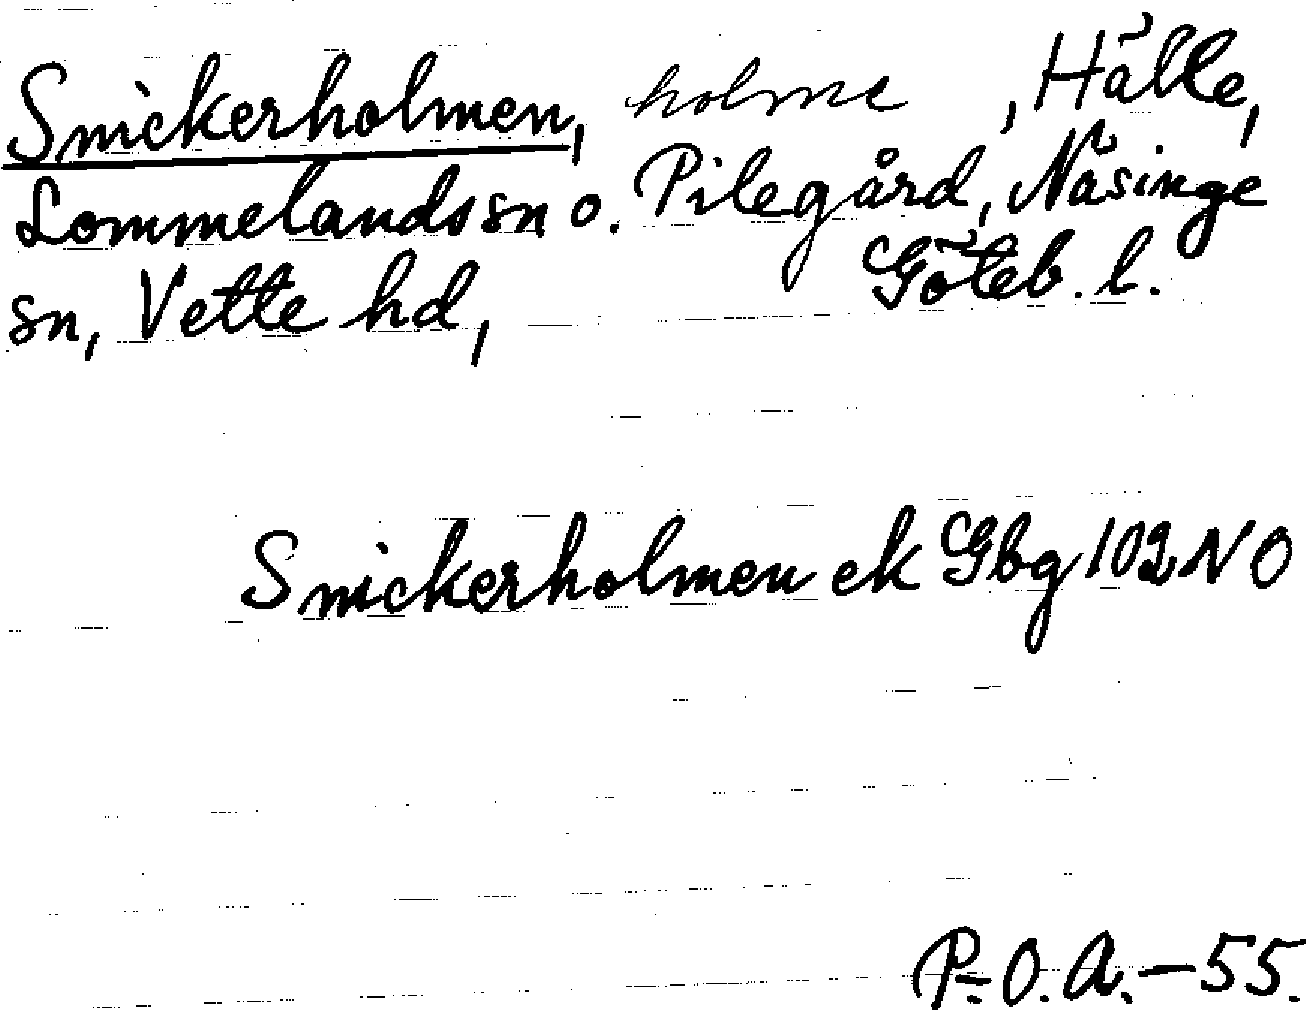 Snickerholmen, holme, Hälle,
Lommelands sn o. Pilegård, Näsinge
sn, Vette hd, Göteb. l.
Snickerholmen ek Gbg 102 NO
P.-O. A. - 55.